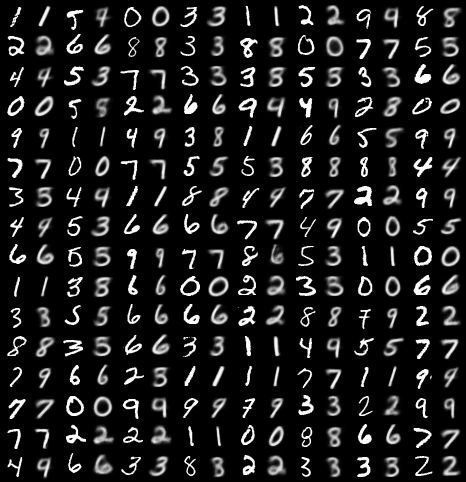 1 1 5 4 0 0 3 3 1 1 2 2 9 9 8 8
2 2 6 6 8 8 3 3 8 8 0 0 7 7 5 5
4 4 5 3 7 7 3 3 3 8 5 5 3 3 6 6
0 0 5 8 2 2 6 6 9 4 4 9 2 8 0 0
9 9 1 1 4 9 3 8 1 1 6 6 5 5 9 9
7 7 0 0 7 7 5 5 5 3 8 8 8 8 4 4
3 5 4 9 1 1 8 8 4 9 7 7 2 2 9 9
4 4 5 3 6 6 6 6 7 7 4 9 0 0 5 5
6 6 5 5 9 9 7 7 8 6 5 3 1 1 0 0
1 1 3 8 6 6 0 0 2 2 3 5 0 0 6 6
3 3 5 5 6 6 6 6 2 2 8 8 7 9 2 2
8 8 3 5 6 6 3 3 1 1 4 9 5 5 7 7
7 9 6 6 2 3 1 1 1 1 7 7 1 1 9 9
7 7 0 0 9 9 9 9 7 9 3 3 2 2 9 9
7 7 2 2 2 2 1 1 0 0 8 8 6 6 7 7
4 9 6 6 3 3 8 8 2 2 3 3 3 3 2 2